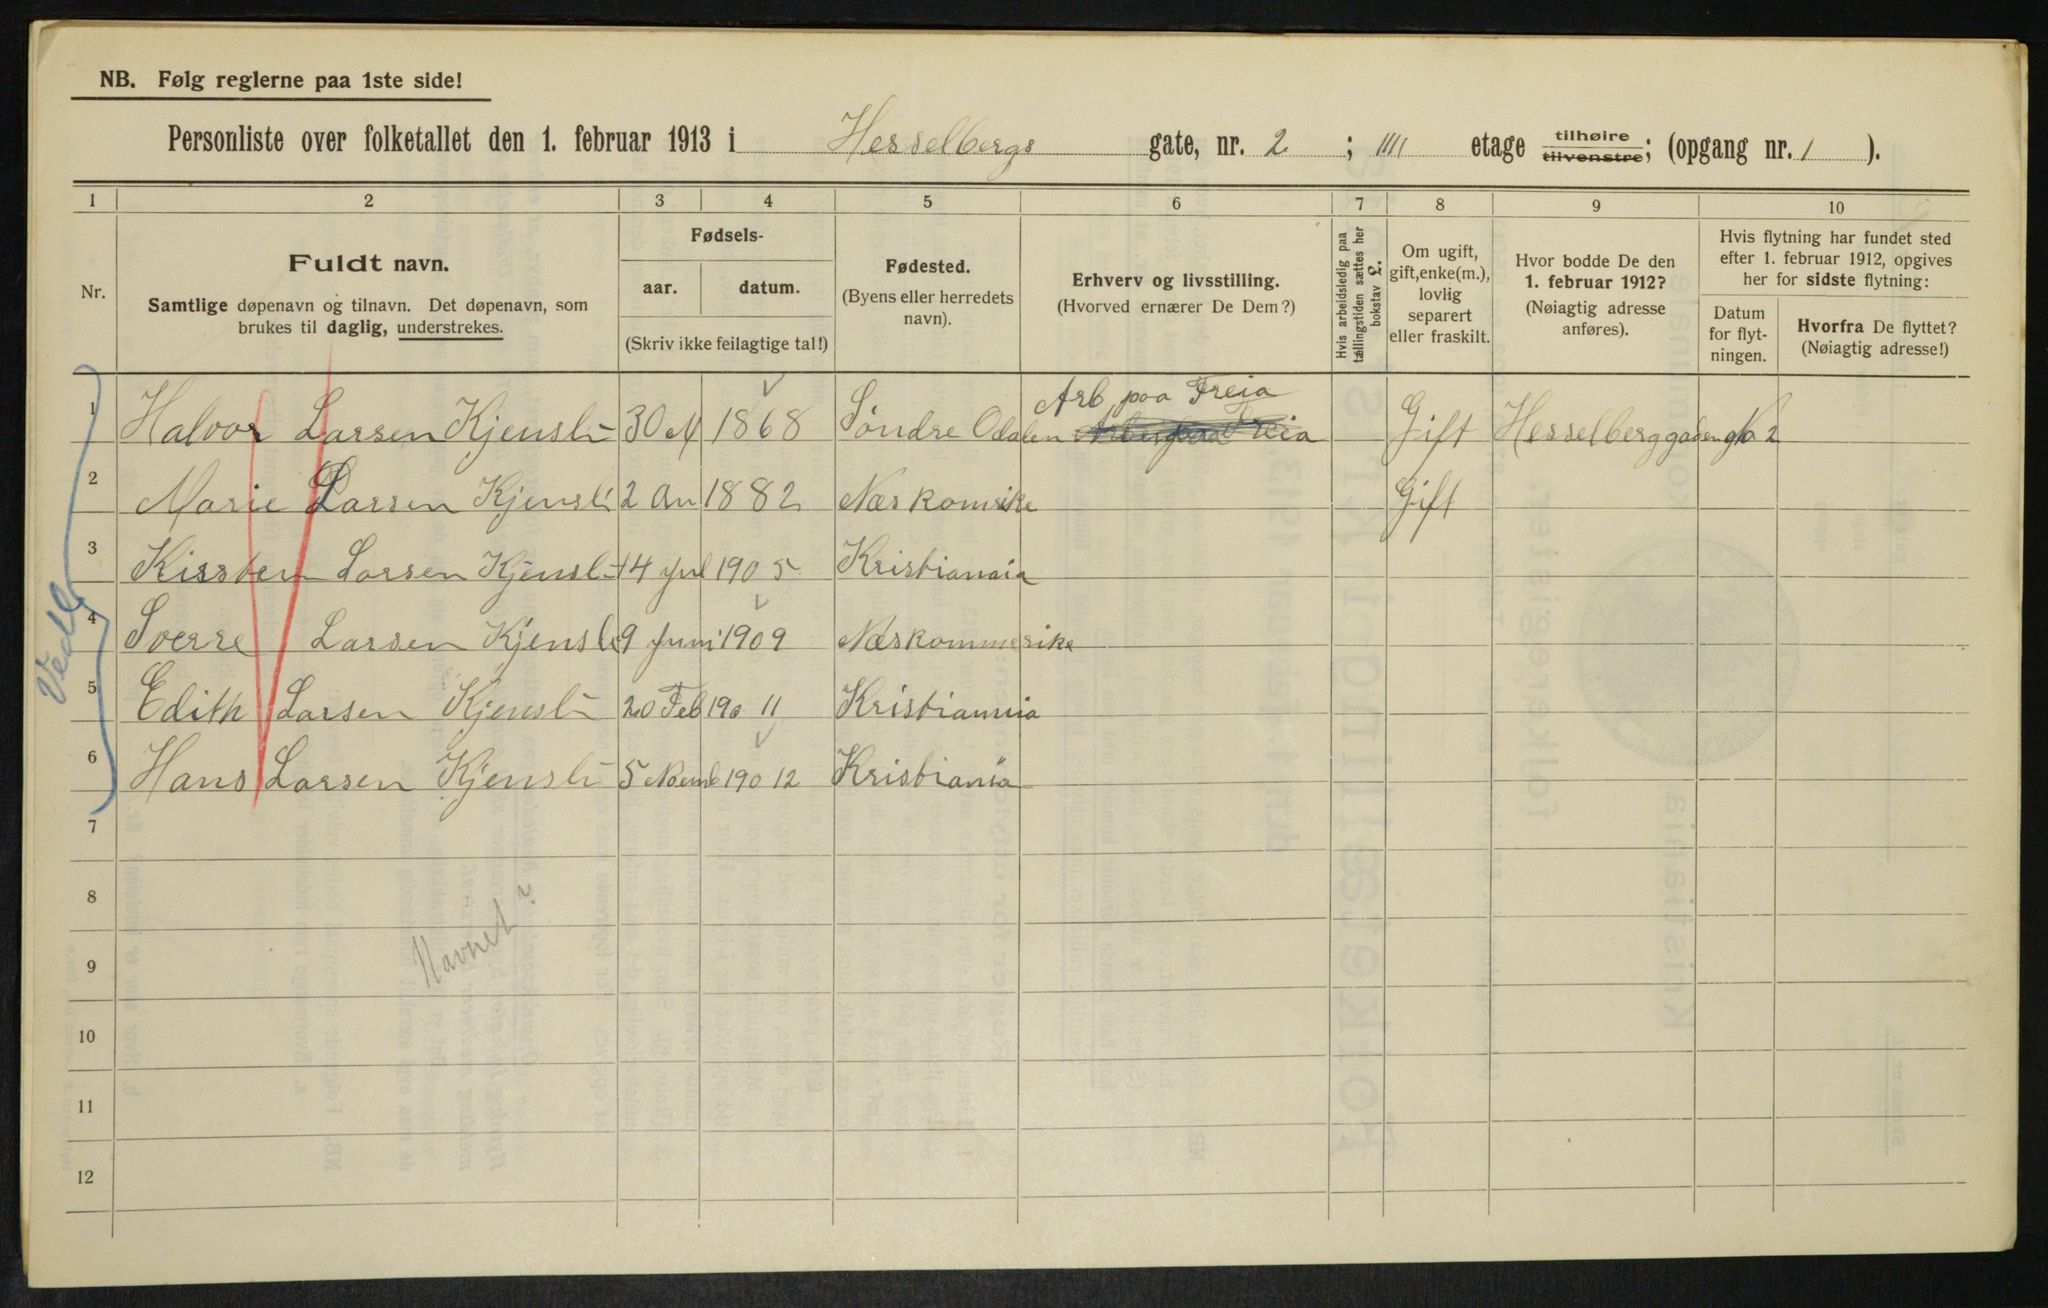 NB. Følg reglerne paa 1ste side!
Personliste over folketallet den 1. februar 1913 i Hesselbergs gate, nr. 2 ; IIII etage tilhøire tilvenstre; (opgang nr. 1 ).
1 2 3 4 5 6 7 8 9 10
Nr.
Fuldt navn.
Samtlige døpenavn og tilnavn. Det døpenavn, som
brukes til daglig, understrekes.
Fødsels-
aar. datum.
(Skriv ikke feilagtige tal!)
Fødested.
(Byens eller herredets
navn).
Erhverv og livsstilling.
(Hvorved ernærer De Dem?)
Hvis arbeidsledig paa
tællingstiden sættes her
bokstav L.
Om ugift,
gift, enke(m.),
lovlig
separert
eller fraskilt.
Hvor bodde De den
1. februar 1912?
(Nøiagtig adresse
anføres).
Hvis flytning har fundet sted
efter 1. februar 1912, opgives
her for sidste flytning:
Datum
for flyt-
ningen.
Hvorfra De flyttet?
(Nøiagtig adresse!)
Arb paa Freia
1 Halvor Larsen Kjensli 30 1868 Søndre Odalen Freia Gift Hesselberggaden No 2
2 Marie Larsen Kjensli 2 1882 Næs Gift
3 Kirsten Larsen Kjensli 14 jul 1905 Kristianaia
4 Sverre Larsen Kjensli 9 Juni 1909 Næskommerike
5 Edith Larsen Kjensli 20 Feb 190 11 Kristiannia
6 Hans Larsen Kjensli 5 190 12 Kristiania
7
8
9
10
11
12
Navnet